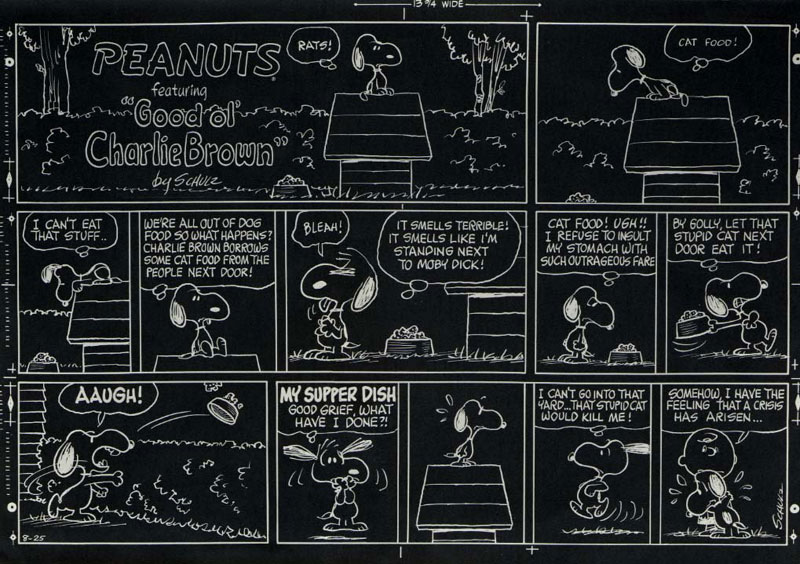 13 3/4 WIDE
PEANUTS
featuring
"Good ol'
Charlie Brown"
by SCHULZ
RATS!
CAT FOOD!
I CAN'T EAT
THAT STUFF..
WE'RE ALL OUT OF DOG
FOOD SO WHAT HAPPENS?
CHARLIE BROWN BORROWS
SOME CAT FOOD FROM THE
PEOPLE NEXT DOOR!
BLEAH!
IT SMELLS TERRIBLE!
IT SMELLS LIKE I'M
STANDING NEXT
TO MOBY DICK!
CAT FOOD! UGH!!
I REFUSE TO INSULT
MY STOMACH WITH
SUCH OUTRAGEOUS FARE
BY GOLLY, LET THAT
STUPID CAT NEXT
DOOR EAT IT!
AAUGH!
8-25
MY SUPPER DISH
GOOD GRIEF, WHAT
HAVE I DONE?!
I CAN'T GO INTO THAT
YARD...THAT STUPID CAT
WOULD KILL ME!
SOMEHOW, I HAVE THE
FEELING THAT A CRISIS
HAS ARISEN...
SCHULZ